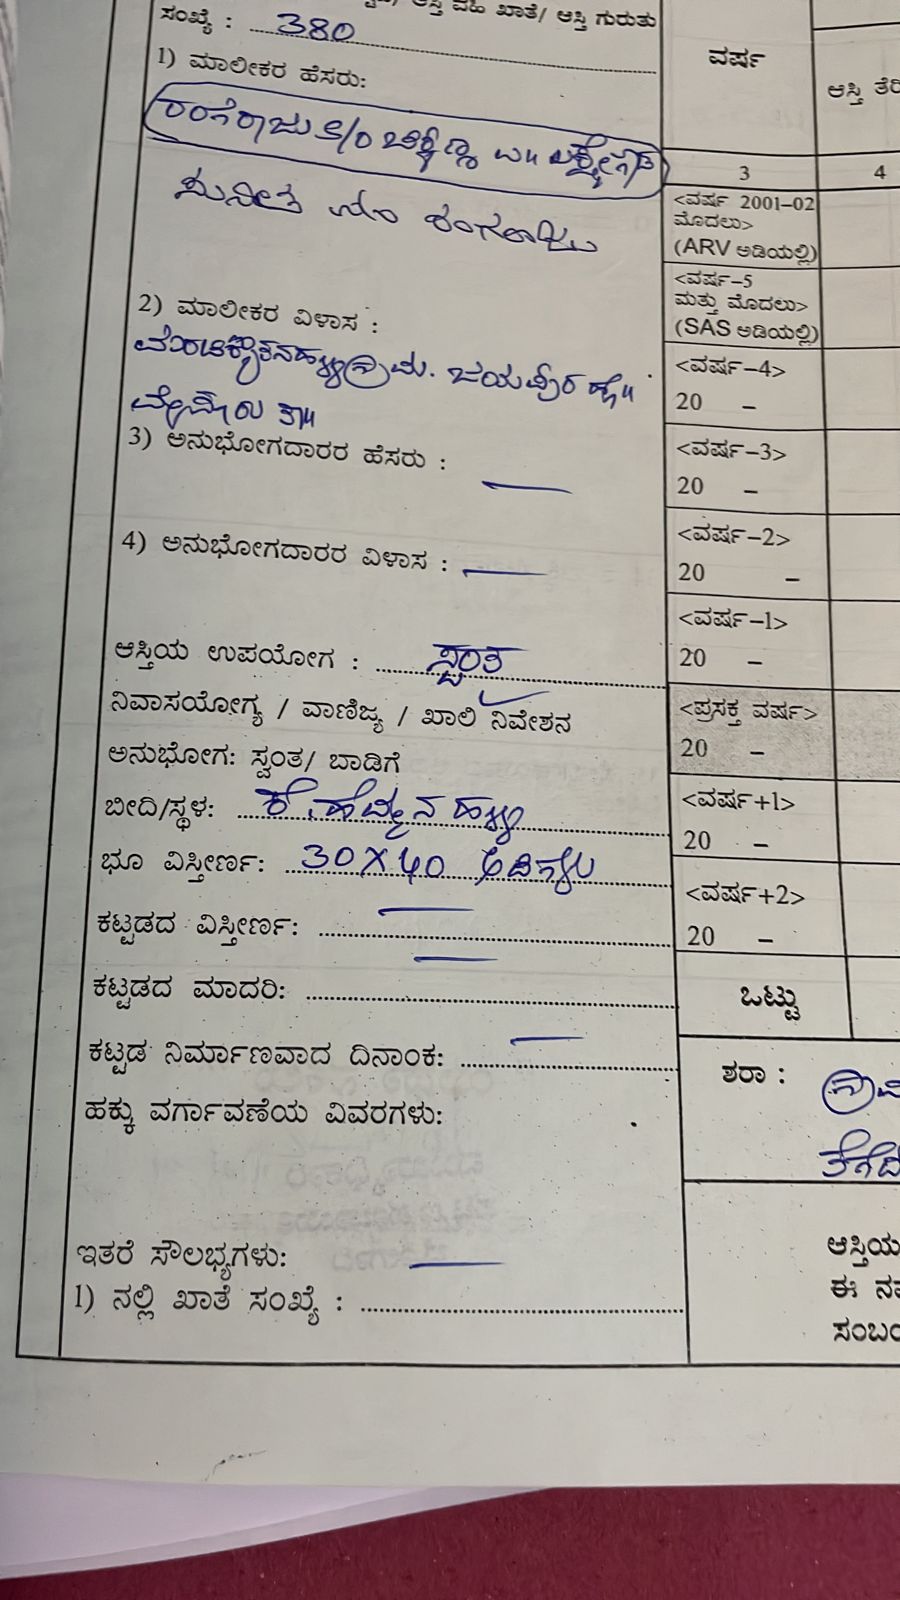 ಆಸ್ತಿ ವಹಿ ಖಾತೆ/ ಆಸ್ತಿ ಗುರುತು
ಸಂಖ್ಯೆ : 380
1) ಮಾಲೀಕರ ಹೆಸರು:
ರಂಗರಾಜು S/o
ಸುನೀತ
2) ಮಾಲೀಕರ ವಿಳಾಸ :
ಗ್ರಾಮ.
3) ಅನುಭೋಗದಾರರ ಹೆಸರು : —
4) ಅನುಭೋಗದಾರರ ವಿಳಾಸ : —
ಆಸ್ತಿಯ ಉಪಯೋಗ : ಸ್ವಂತ
ನಿವಾಸಯೋಗ್ಯ / ವಾಣಿಜ್ಯ / ಖಾಲಿ ನಿವೇಶನ
ಅನುಭೋಗ: ಸ್ವಂತ/ ಬಾಡಿಗೆ
ಬೀದಿ/ಸ್ಥಳ:
ಭೂ ವಿಸ್ತೀರ್ಣ: 30X40 ಅಡಿಗಳು
ಕಟ್ಟಡದ ವಿಸ್ತೀರ್ಣ: —
ಕಟ್ಟಡದ ಮಾದರಿ: —
ಕಟ್ಟಡ ನಿರ್ಮಾಣವಾದ ದಿನಾಂಕ: —
ಹಕ್ಕು ವರ್ಗಾವಣೆಯ ವಿವರಗಳು:
ಇತರೆ ಸೌಲಭ್ಯಗಳು: —
1) ನಲ್ಲಿ ಖಾತೆ ಸಂಖ್ಯೆ :
ವರ್ಷ
3
<ವರ್ಷ 2001–02
ಮೊದಲು>
(ARV ಅಡಿಯಲ್ಲಿ)
<ವರ್ಷ–5
ಮತ್ತು ಮೊದಲು>
(SAS ಅಡಿಯಲ್ಲಿ)
<ವರ್ಷ–4>
20 –
<ವರ್ಷ–3>
20 –
<ವರ್ಷ–2>
20 –
<ವರ್ಷ–1>
20 –
<ಪ್ರಸಕ್ತ ವರ್ಷ>
20 –
<ವರ್ಷ+1>
20 –
<ವರ್ಷ+2>
20 –
ಒಟ್ಟು
ಶರಾ :
ಆಸ್ತಿ
4
ಆಸ್ತಿಯ
ಈ